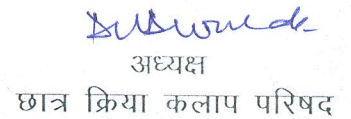 अध्यक्ष
छात्र क्रिया कलाप परिषद